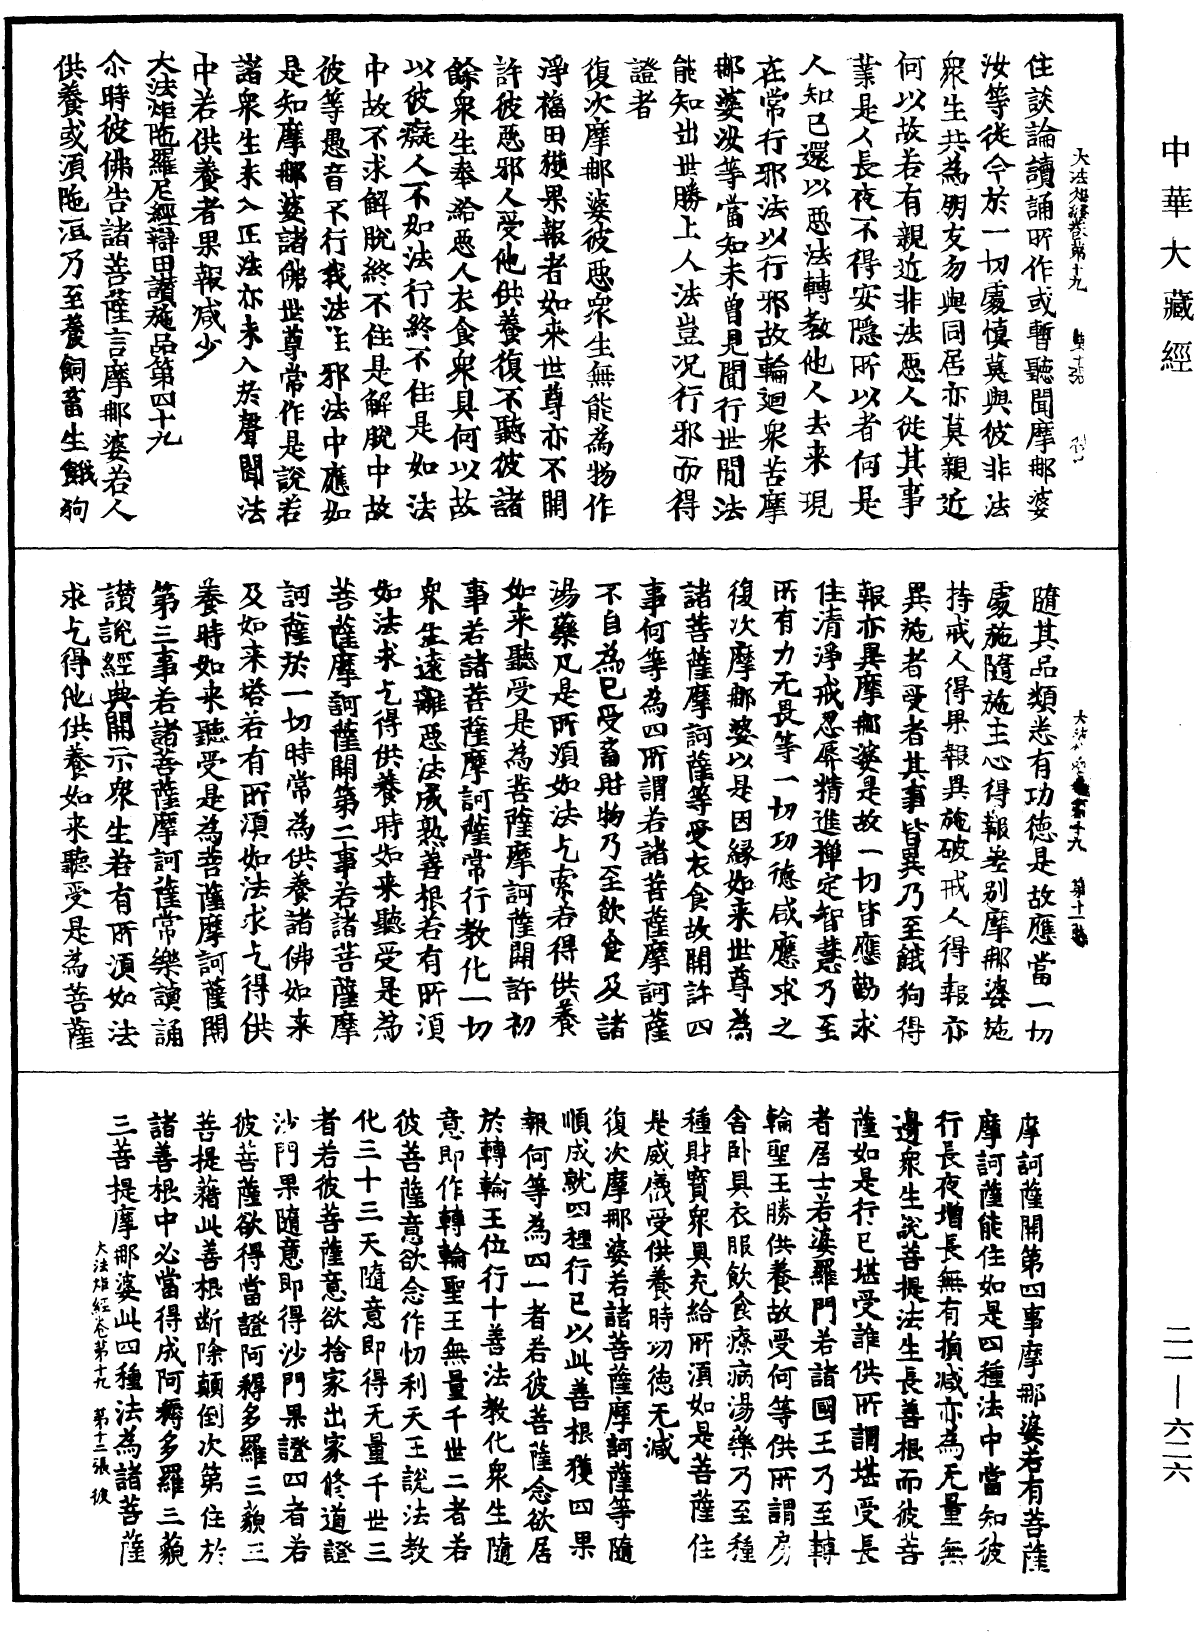 中華大藏經
大法炬經卷第十九
住談論讀誦所作或暫聽聞摩那婆
汝等從今於一切處慎莫與彼非法
衆生共為朋友勿與同居亦莫親近
何以故若有親近非法惡人從其事
業是人長夜不得安隱所以者何是
人知已還以惡法轉教他人去来現
在常行邪法以行邪故輪廻衆苦摩
那婆汝等當知未曽見聞行世間法
能知出世勝上人法豈况行邪而得
證者
復次摩那婆彼惡衆生無能為物作
淨福田獲果報者如来世尊亦不開
許彼惡邪人受他供養復不聽彼諸
餘衆生奉給惡人衣食衆具何以故
以彼癡人不如法行終不住是如法
中故不求解脫終不住是解脫中故
彼等愚音不行我法住邪法中應如
是知摩那婆諸佛世尊常作是說若
諸衆生未入正法亦未入於聲聞法
中若供養者果報减少
大法炬陁羅尼經辯田讚施品第四十九
尒時彼佛告諸菩薩言摩那婆若人
供養或湏陁洹乃至養飼畜生餓狗
大法炬經卷第十九 第十一張
隨其品類悉有功德是故應當一切
處施隨施主心得報差别摩那婆施
持戒人得果報異施破戒人得報亦
異施者受者其事皆異乃至餓狗得
報亦異摩那婆是故一切皆應勤求
住清淨戒忍辱精進禪定智慧乃至
所有力无畏等一切功德咸應求之
復次摩那婆以是因緣如来世尊為
諸菩薩摩訶薩等受衣食故開許四
事何等為四所謂若諸菩薩摩訶薩
不自為已受畜財物乃至飲食及諸
湯藥凡是所湏如法乞索若得供養
如来聽受是為菩薩摩訶薩開許初
事若諸菩薩摩訶薩常行教化一切
衆生遠離惡法成熟善根若有所湏
如法求乞得供養時如来聽受是為
菩薩摩訶薩開第二事若諸菩薩摩
訶薩於一切時常為供養諸佛如来
及如来塔若有所湏如法求乞得供
養時如来聽受是為菩薩摩訶薩開
第三事若諸菩薩摩訶薩常樂讀誦
讃說經典開示衆生若有所湏如法
求乞得他供養如来聽受是為菩薩
摩訶薩開第四事摩那婆若有菩薩
摩訶薩能住如是四種法中當知彼
行長夜增長無有損减亦為无量無
邊衆生說菩提法生長善根而彼菩
薩如是行已堪受誰供所謂堪受長
者居士若婆羅門若諸國王乃至轉
輪聖王勝供養故受何等供所謂房
舎卧具衣服飲食療病湯藥乃至種
種財寳衆具充給所湏如是菩薩住
是威儀受供養時功徳无减
復次摩那婆若諸菩薩摩訶薩等隨
順成就四種行已以此善根獲四果
報何等為四一者若彼菩薩念欲居
於轉輪王位行十善法教化衆生隨
意即作轉輪聖王無量千世二者若
彼菩薩意欲念作忉利天王說法教
化三十三天隨意即得无量千世三
者若彼菩薩意欲捨家出家修道證
沙門果隨意即得沙門果證四者若
彼菩薩欲得當證阿耨多羅三藐三
菩提藉此善根断除顛倒次第住於
諸善根中必當得成阿耨多羅三藐
三菩提摩那婆此四種法為諸菩薩
大法炬經卷第十九 第十二張 彼
二一—六二六